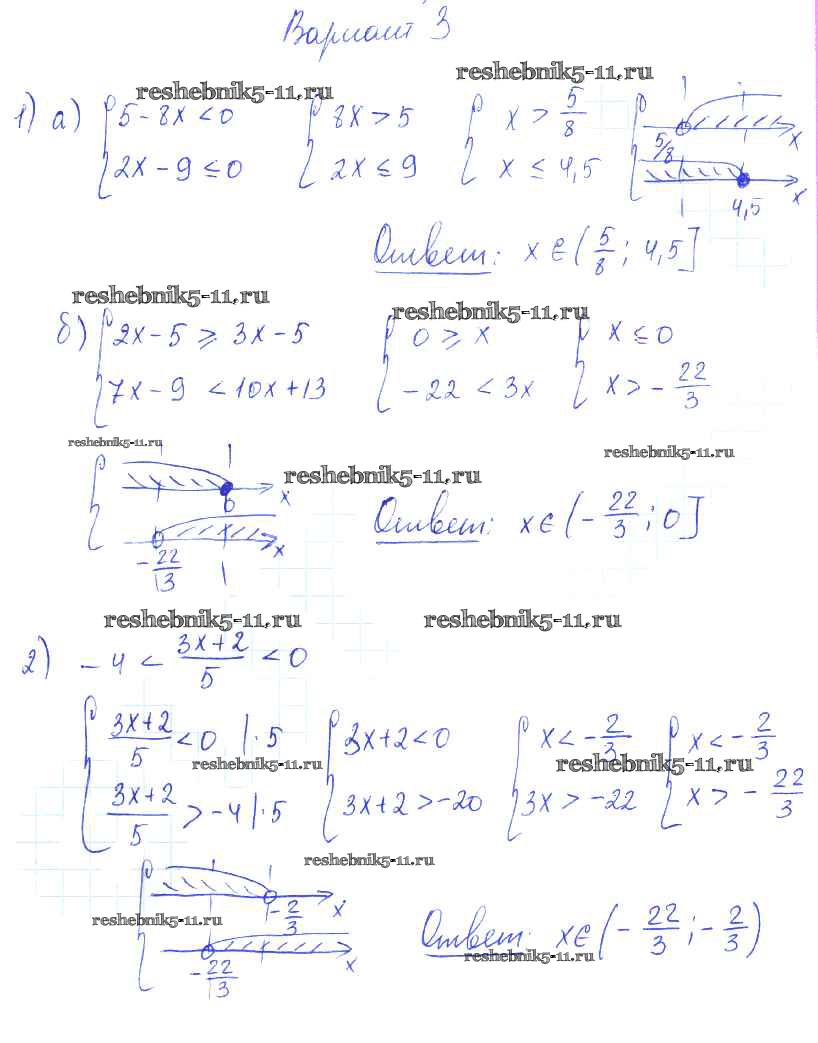 Вариант 3
reshebnik5-11.ru
reshebnik5-11.ru
1) а) { 5 - 8x < 0 { 8x > 5 { x > 5/8
{ 2x - 9 ≤ 0 { 2x ≤ 9 { x ≤ 4,5
5/8 x
4,5 x
Ответ: x ∈ (5/8; 4,5]
reshebnik5-11.ru
reshebnik5-11.ru
б) { 2x - 5 ≥ 3x - 5 { 0 ≥ x { x ≤ 0
{ 7x - 9 < 10x + 13 { -22 < 3x { x > -22/3
reshebnik5-11.ru
reshebnik5-11.ru
reshebnik5-11.ru
0 x
-22/3 x
Ответ: x ∈ (-22/3; 0]
reshebnik5-11.ru
reshebnik5-11.ru
2) -4 < (3x+2)/5 < 0
{ (3x+2)/5 < 0 |·5 { 3x+2 < 0 { x < -2/3 { x < -2/3
reshebnik5-11.ru
reshebnik5-11.ru
{ (3x+2)/5 > -4 |·5 { 3x+2 > -20 { 3x > -22 { x > -22/3
reshebnik5-11.ru
-2/3 x
reshebnik5-11.ru
-22/3 x
Ответ: x ∈ (-22/3; -2/3)
reshebnik5-11.ru